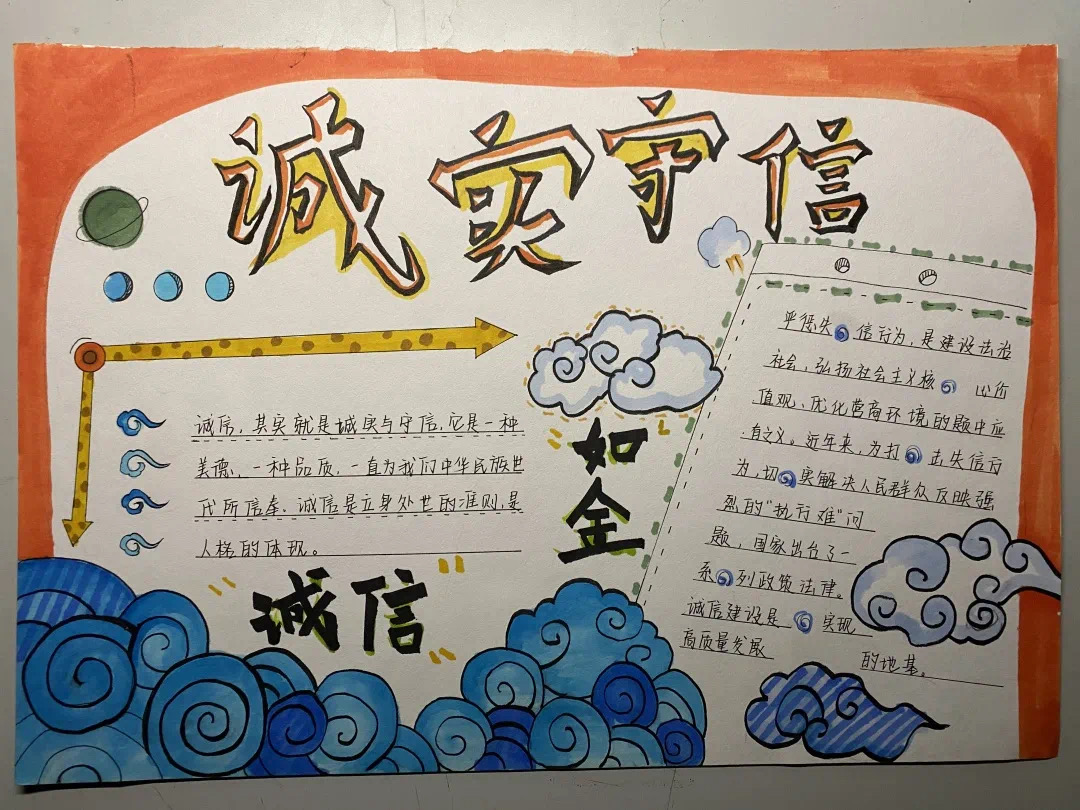 诚实守信
诚信，其实就是诚实与守信，它是一种
美德，一种品质，一直为我们中华民族世
代所信奉。诚信是立身处世的准则，是
人格的体现。
诚信
如
金
严惩失信行为，是建设法治
社会，弘扬社会主义核心价
值观、优化营商环境的题中应
有之义。近年来，为打击失信行
为，切实解决人民群众反映强
烈的“执行难”问
题，国家出台了一
系列政策法律。
诚信建设是实现
高质量发展的地基。